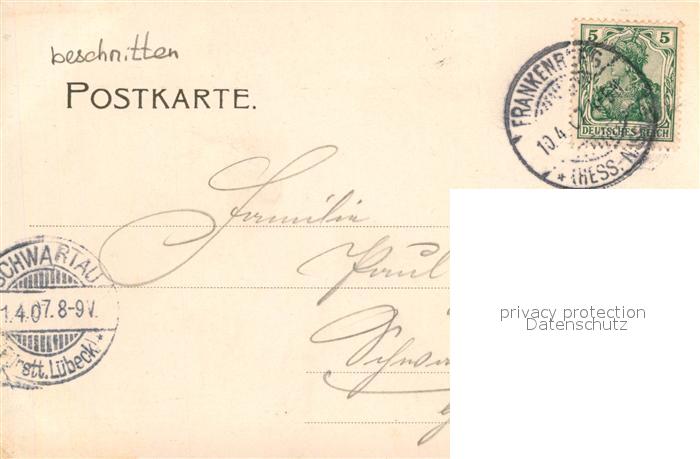 beschnitten
POSTKARTE.
5 5
DEUTSCHES REICH
FRANKENBERG
10.4.
* (HESS.-N
Familie
Paul
SCHWARTAU
1.4.07. 8-9V.
rstt. Lübeck) *
privacy protection
Datenschutz